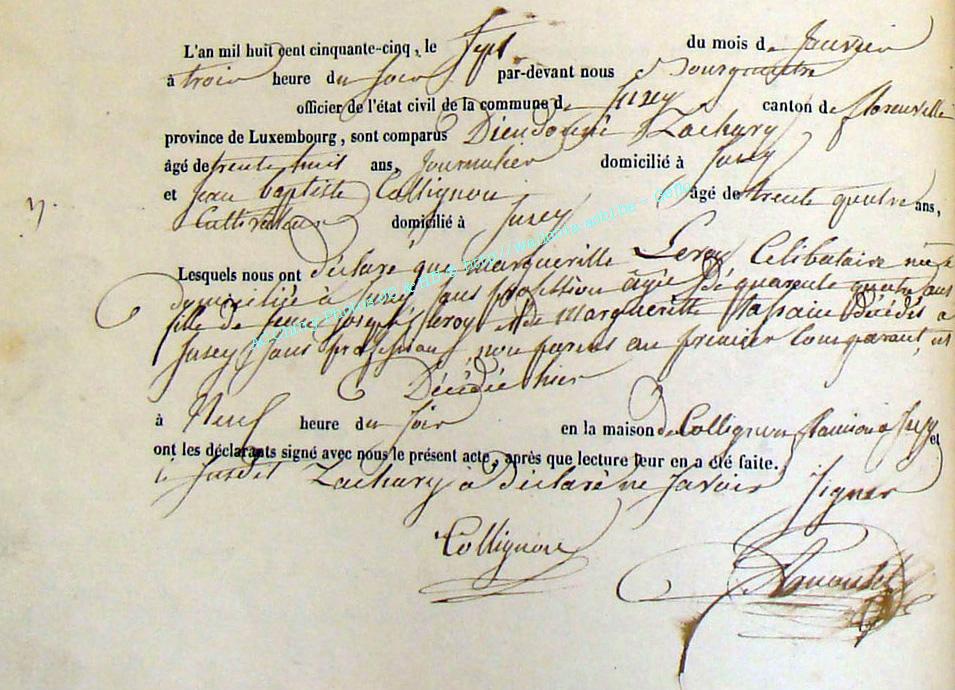 L'an mil huit cent cinquante-cinq, le Sept du mois de Janvier
à trois heure du Soir par-devant nous Bourgmestre
officier de l'état civil de la commune de Suxey canton de florenville
province de Luxembourg, sont comparus Dieudonné Zachary
âgé de trente huit ans, Journalier domicilié à Suxey
et Jean baptiste Collignon âgé de trente quatre ans,
Cultivateur domicilié à Suxey
Lesquels nous ont déclaré que Margueritte Leroy Célibataire née
domiciliée à Suxey sans profession agée de quarante quatre ans
fille de feux Joseph Leroy et de Margueritte décédés a
Suxey sans profession, non parens au premier Comparant, est
Décédée hier
à Neuf heure du Soir en la maison de Collignon a Suxy et
ont les déclarants signé avec nous le présent acte, après que lecture leur en a été faite.
le Susdit Zachary à déclaré ne Savoir Signer
Collignon